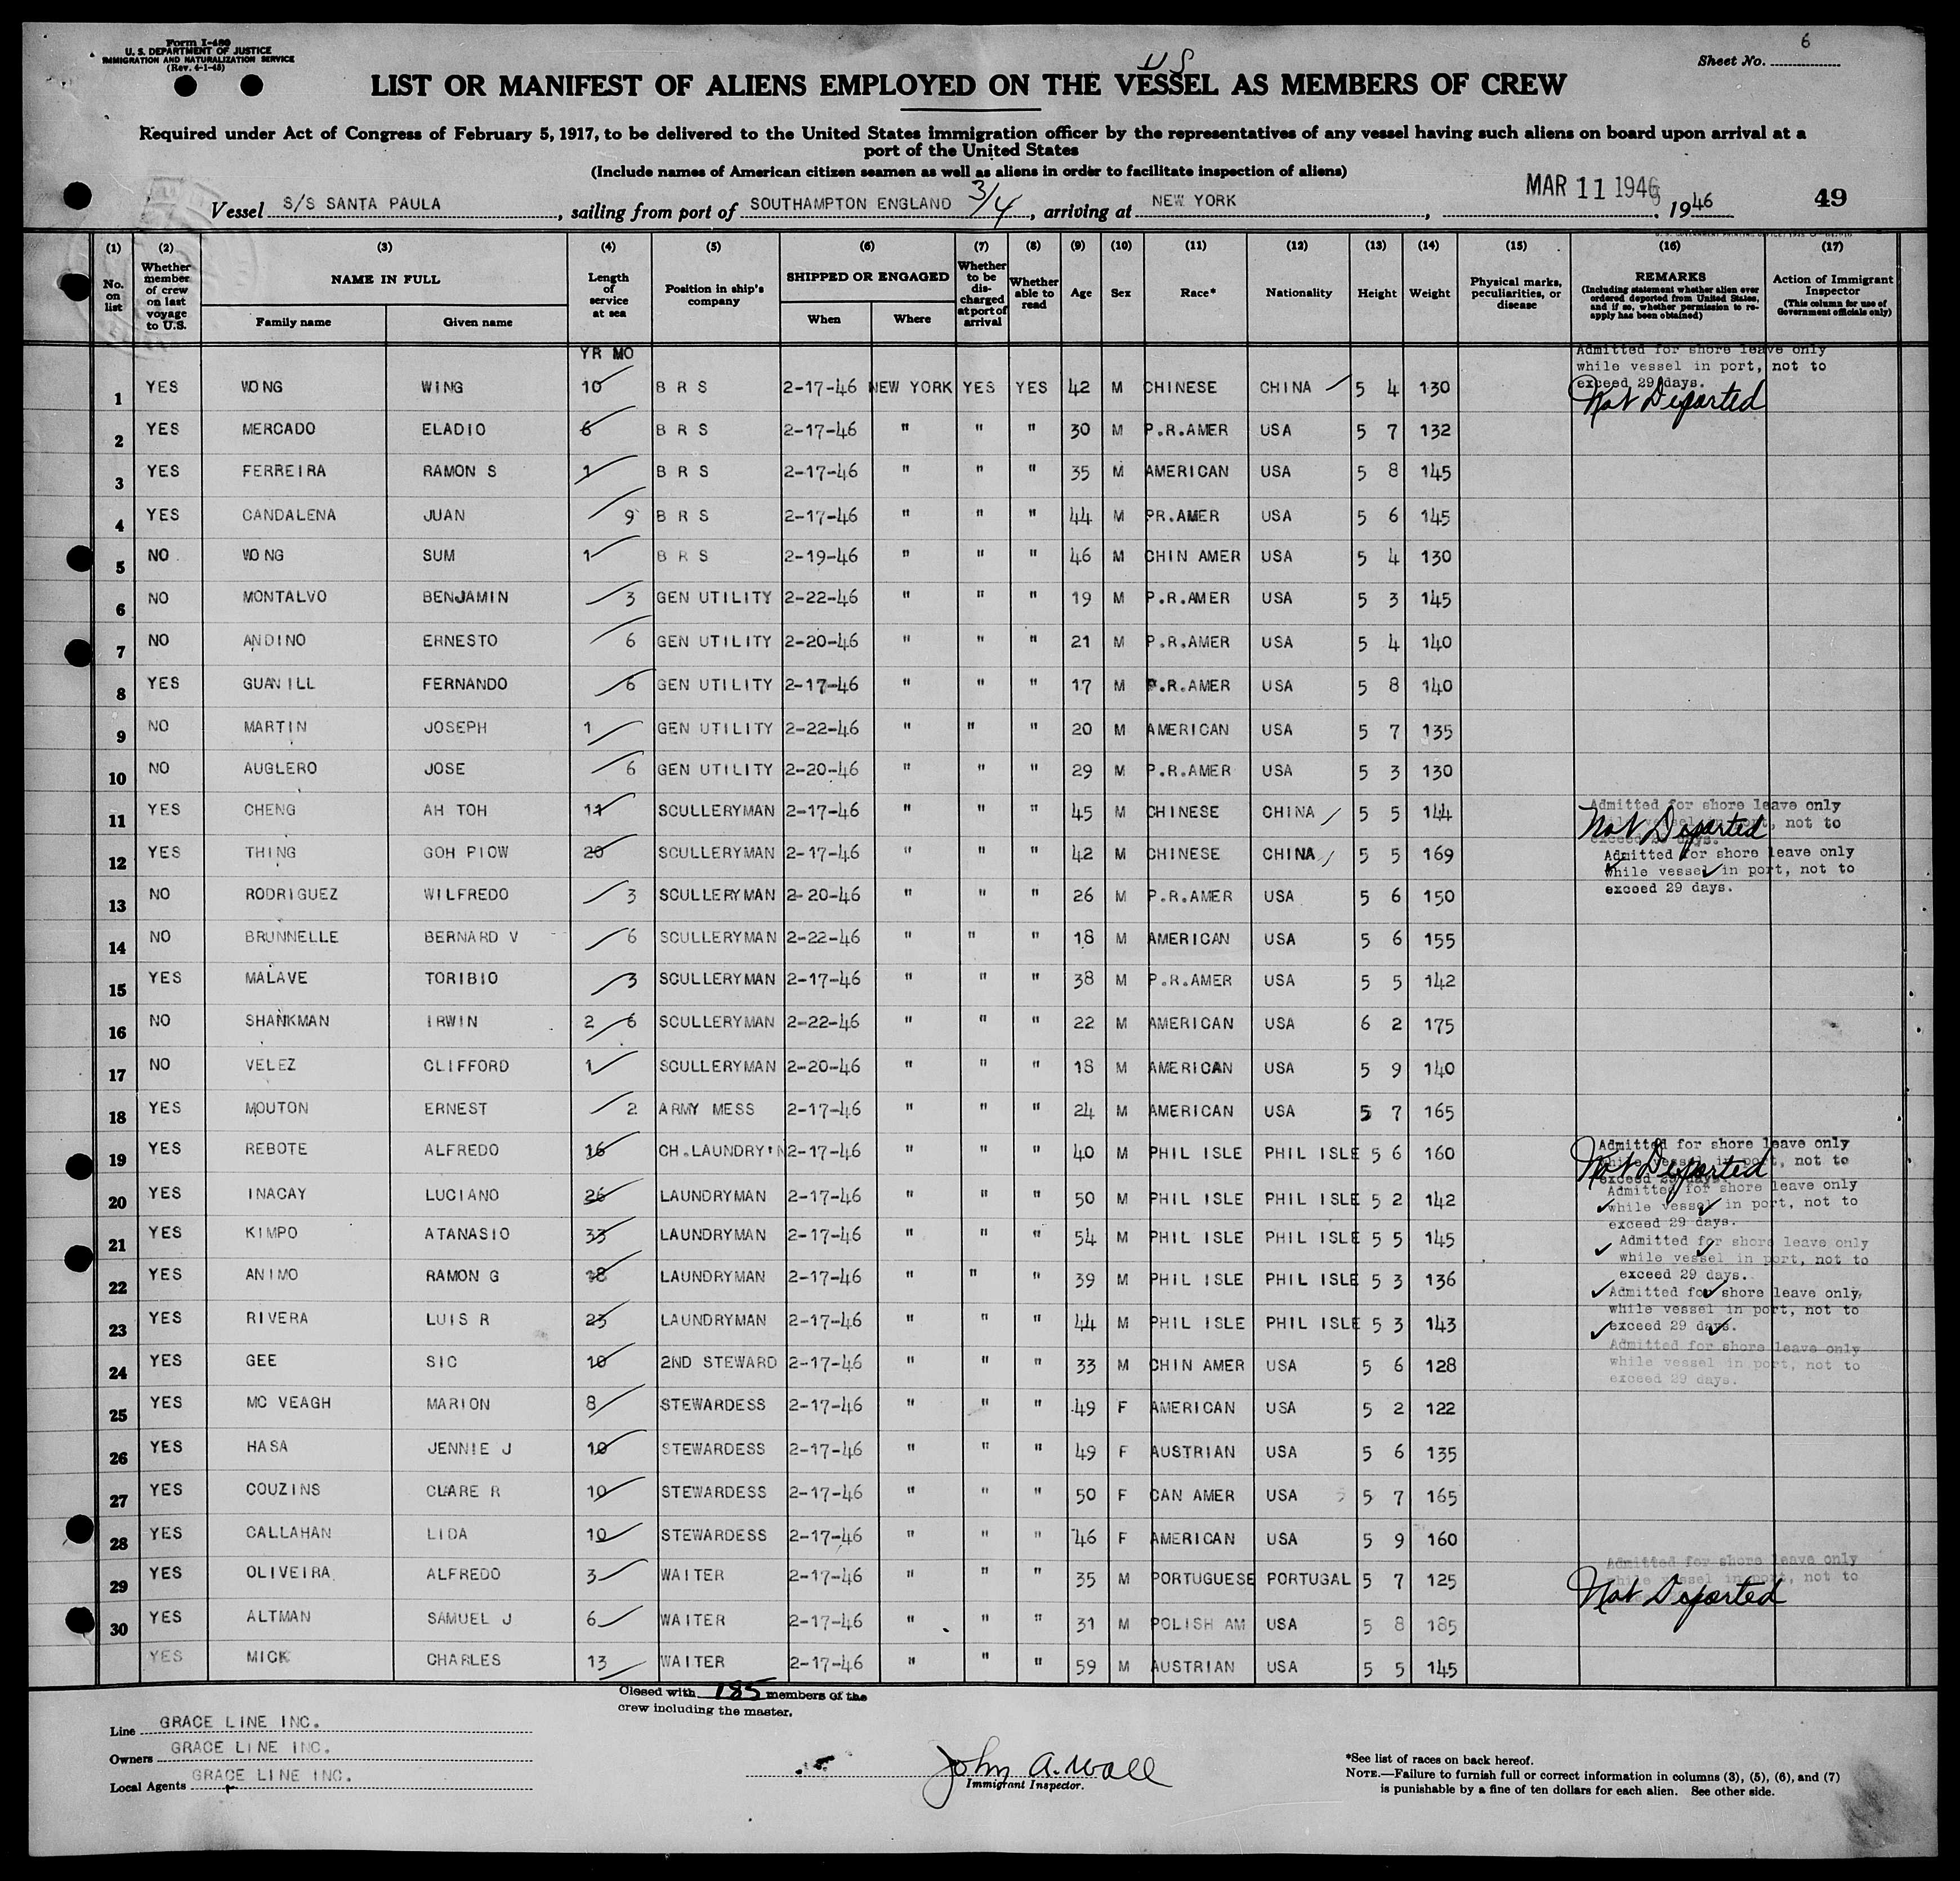 Form I-480
U. S. DEPARTMENT OF JUSTICE
IMMIGRATION AND NATURALIZATION SERVICE
(Rev. 4-1-45)
6
Sheet No.
U S
LIST OR MANIFEST OF ALIENS EMPLOYED ON THE VESSEL AS MEMBERS OF CREW
Required under Act of Congress of February 5, 1917, to be delivered to the United States immigration officer by the representatives of any vessel having such aliens on board upon arrival at a
port of the United States
(Include names of American citizen seamen as well as aliens in order to facilitate inspection of aliens)
Vessel S/S SANTA PAULA, sailing from port of SOUTHAMPTON ENGLAND 3/4, arriving at NEW YORK, MAR 11 1946, 1946 49
(1) (2) (3) (4) (5) (6) (7) (8) (9) (10) (11) (12) (13) (14) (15) (16) (17)
No. on list | Whether member of crew on last voyage to U.S. | NAME IN FULL Family name Given name | Length of service at sea | Position in ship's company | SHIPPED OR ENGAGED When Where | Whether to be discharged at port of arrival | Whether able to read | Age | Sex | Race* | Nationality | Height | Weight | Physical marks, peculiarities, or disease | REMARKS (Including statement whether alien ever ordered deported from United States, and if so, whether permission to reapply has been obtained) | Action of Immigrant Inspector (This column for use of Government officials only)
YR MO
1 YES WONG WING 10 B R S 2-17-46 NEW YORK YES YES 42 M CHINESE CHINA 5 4 130 Admitted for shore leave only while vessel in port, not to exceed 29 days. Not Departed
2 YES MERCADO ELADIO 6 B R S 2-17-46 " " " 30 M P.R.AMER USA 5 7 132
3 YES FERREIRA RAMON S 1 B R S 2-17-46 " " " 35 M AMERICAN USA 5 8 145
4 YES CANDALENA JUAN 9 B R S 2-17-46 " " " 44 M PR.AMER USA 5 6 145
5 NO WONG SUM 1 B R S 2-19-46 " " " 46 M CHIN AMER USA 5 4 130
6 NO MONTALVO BENJAMIN 3 GEN UTILITY 2-22-46 " " " 19 M P.R.AMER USA 5 3 145
7 NO ANDINO ERNESTO 6 GEN UTILITY 2-20-46 " " " 21 M P.R.AMER USA 5 4 140
8 YES GUANILL FERNANDO 6 GEN UTILITY 2-17-46 " " " 17 M P.R.AMER USA 5 8 140
9 NO MARTIN JOSEPH 1 GEN UTILITY 2-22-46 " " " 20 M AMERICAN USA 5 7 135
10 NO AUGLERO JOSE 6 GEN UTILITY 2-20-46 " " " 29 M P.R.AMER USA 5 3 130
11 YES CHENG AH TOH 11 SCULLERYMAN 2-17-46 " " " 45 M CHINESE CHINA 5 5 144 Admitted for shore leave only while vessel in port, not to exceed 29 days. Not Departed
12 YES THING GOH PIOW 20 SCULLERYMAN 2-17-46 " " " 42 M CHINESE CHINA 5 5 169 Admitted for shore leave only while vessel in port, not to exceed 29 days.
13 NO RODRIGUEZ WILFREDO 3 SCULLERYMAN 2-20-46 " " " 26 M P.R.AMER USA 5 6 150
14 NO BRUNNELLE BERNARD V 6 SCULLERYMAN 2-22-46 " " " 18 M AMERICAN USA 5 6 155
15 YES MALAVE TORIBIO 3 SCULLERYMAN 2-17-46 " " " 38 M P.R.AMER USA 5 5 142
16 NO SHANKMAN IRWIN 2 6 SCULLERYMAN 2-22-46 " " " 22 M AMERICAN USA 6 2 175
17 NO VELEZ CLIFFORD 1 SCULLERYMAN 2-20-46 " " " 18 M AMERICAN USA 5 9 140
18 YES MOUTON ERNEST 2 ARMY MESS 2-17-46 " " " 24 M AMERICAN USA 5 7 165
19 YES REBOTE ALFREDO 16 CH.LAUNDRY'N 2-17-46 " " " 40 M PHIL ISLE PHIL ISLE 5 6 160 Admitted for shore leave only while vessel in port, not to exceed 29 days. Not Departed
20 YES INACAY LUCIANO 26 LAUNDRYMAN 2-17-46 " " " 50 M PHIL ISLE PHIL ISLE 5 2 142 Admitted for shore leave only while vessel in port, not to exceed 29 days.
21 YES KIMPO ATANASIO 33 LAUNDRYMAN 2-17-46 " " " 54 M PHIL ISLE PHIL ISLE 5 5 145 Admitted for shore leave only while vessel in port, not to exceed 29 days.
22 YES ANIMO RAMON G 18 LAUNDRYMAN 2-17-46 " " " 39 M PHIL ISLE PHIL ISLE 5 3 136 Admitted for shore leave only while vessel in port, not to exceed 29 days.
23 YES RIVERA LUIS R 23 LAUNDRYMAN 2-17-46 " " " 44 M PHIL ISLE PHIL ISLE 5 3 143 Admitted for shore leave only while vessel in port, not to exceed 29 days.
24 YES GEE SIC 10 2ND STEWARD 2-17-46 " " " 33 M CHIN AMER USA 5 6 128
25 YES MC VEAGH MARION 8 STEWARDESS 2-17-46 " " " 49 F AMERICAN USA 5 2 122
26 YES HASA JENNIE J 10 STEWARDESS 2-17-46 " " " 49 F AUSTRIAN USA 5 6 135
27 YES COUZINS CLARE R 10 STEWARDESS 2-17-46 " " " 50 F CAN AMER USA 5 7 165
28 YES CALLAHAN LIDA 10 STEWARDESS 2-17-46 " " " 46 F AMERICAN USA 5 9 160
29 YES OLIVEIRA ALFREDO 3 WAITER 2-17-46 " " " 35 M PORTUGUESE PORTUGAL 5 7 125 Admitted for shore leave only while vessel in port, not to Not Departed
30 YES ALTMAN SAMUEL J 6 WAITER 2-17-46 " " " 31 M POLISH AM USA 5 8 185
YES MICK CHARLES 13 WAITER 2-17-46 " " " 59 M AUSTRIAN USA 5 5 145
Closed with 185 members of the
crew including the master.
Line GRACE LINE INC.
Owners GRACE LINE INC.
Local Agents GRACE LINE INC.
John A. Wall
Immigrant Inspector.
*See list of races on back hereof.
NOTE.—Failure to furnish full or correct information in columns (3), (5), (6), and (7)
is punishable by a fine of ten dollars for each alien. See other side.